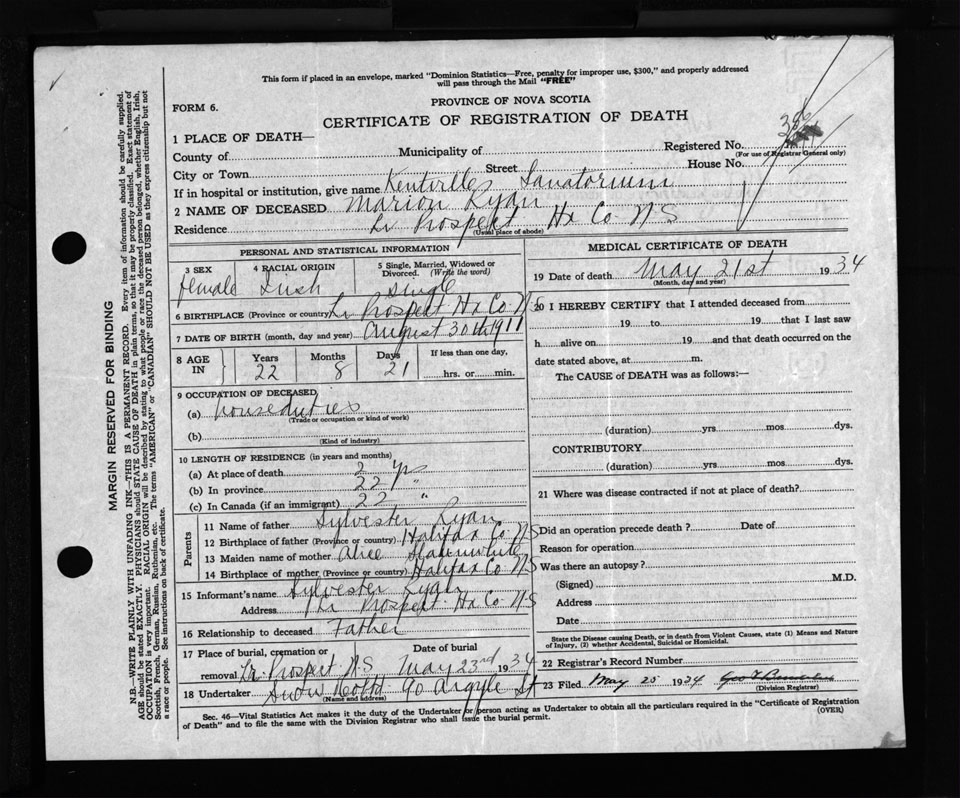 This form if placed in an envelope, marked "Dominion Statistics—Free, penalty for improper use, $300," and properly addressed
will pass through the Mail "FREE"
FORM 6.
PROVINCE OF NOVA SCOTIA
CERTIFICATE OF REGISTRATION OF DEATH
386
1 PLACE OF DEATH—
Registered No.
(For use of Registrar General only)
County of Municipality of
City or Town Street House No.
If in hospital or institution, give name Kentville Sanatorium
2 NAME OF DECEASED Marion Ryan
Residence Lr Prospect Hx Co. N S
(Usual place of abode)
PERSONAL AND STATISTICAL INFORMATION
3 SEX 4 RACIAL ORIGIN 5 Single, Married, Widowed or Divorced. (Write the word)
female Irish single
6 BIRTHPLACE (Province or country) Lr Prospect Hx Co N S
7 DATE OF BIRTH (month, day and year) August 30th 1911
8 AGE IN Years Months Days If less than one day,
22 8 21 hrs. or min.
9 OCCUPATION OF DECEASED
(a) houseduties
(Trade or occupation or kind of work)
(b)
(Kind of industry)
10 LENGTH OF RESIDENCE (in years and months)
(a) At place of death yrs
(b) In province 22 "
(c) In Canada (if an immigrant) 22 "
Parents
11 Name of father Sylvester Ryan
12 Birthplace of father (Province or country) Halifax Co. N S
13 Maiden name of mother Alice
14 Birthplace of mother (Province or country) Halifax Co N S
15 Informant's name Sylvester Ryan
Address Lr Prospect Hx Co N S
16 Relationship to deceased Father
17 Place of burial, cremation or removal Date of burial
Lr. Prospect N.S May 23rd 1934
18 Undertaker 90 Argyle St
(Name and address)
MEDICAL CERTIFICATE OF DEATH
19 Date of death May 21st 1934
(Month, day and year)
20 I HEREBY CERTIFY that I attended deceased from
19 to 19 that I last saw
h alive on 19 and that death occurred on the
date stated above, at m.
The CAUSE of DEATH was as follows:—
(duration) yrs mos dys.
CONTRIBUTORY
(duration) yrs mos dys.
21 Where was disease contracted if not at place of death?
Did an operation precede death? Date of
Reason for operation
Was there an autopsy?
(Signed) M.D.
Address
Date
State the Disease causing Death, or in death from Violent Causes, state (1) Means and Nature
of Injury, (2) whether Accidental, Suicidal or Homicidal.
22 Registrar's Record Number
23 Filed May 25 1934
(Division Registrar)
Sec. 46—Vital Statistics Act makes it the duty of the Undertaker or person acting as Undertaker to obtain all the particulars required in the "Certificate of Registration
of Death" and to file the same with the Division Registrar who shall issue the burial permit.
(OVER)
MARGIN RESERVED FOR BINDING
N.B.—WRITE PLAINLY WITH UNFADING INK—THIS IS A PERMANENT RECORD. Every item of information should be carefully supplied.
AGE should be stated EXACTLY. PHYSICIANS should STATE CAUSE OF DEATH in plain terms, so that it may be properly classified. Exact statement of
OCCUPATION is very important. RACIAL ORIGIN will be described by stating to what people or race the deceased person belonged, whether English, Irish,
Scottish, French, German, Russian, Ruthenian, etc. The terms "AMERICAN" or "CANADIAN" SHOULD NOT BE USED as they express citizenship but not
a race or people. See instructions on back of certificate.